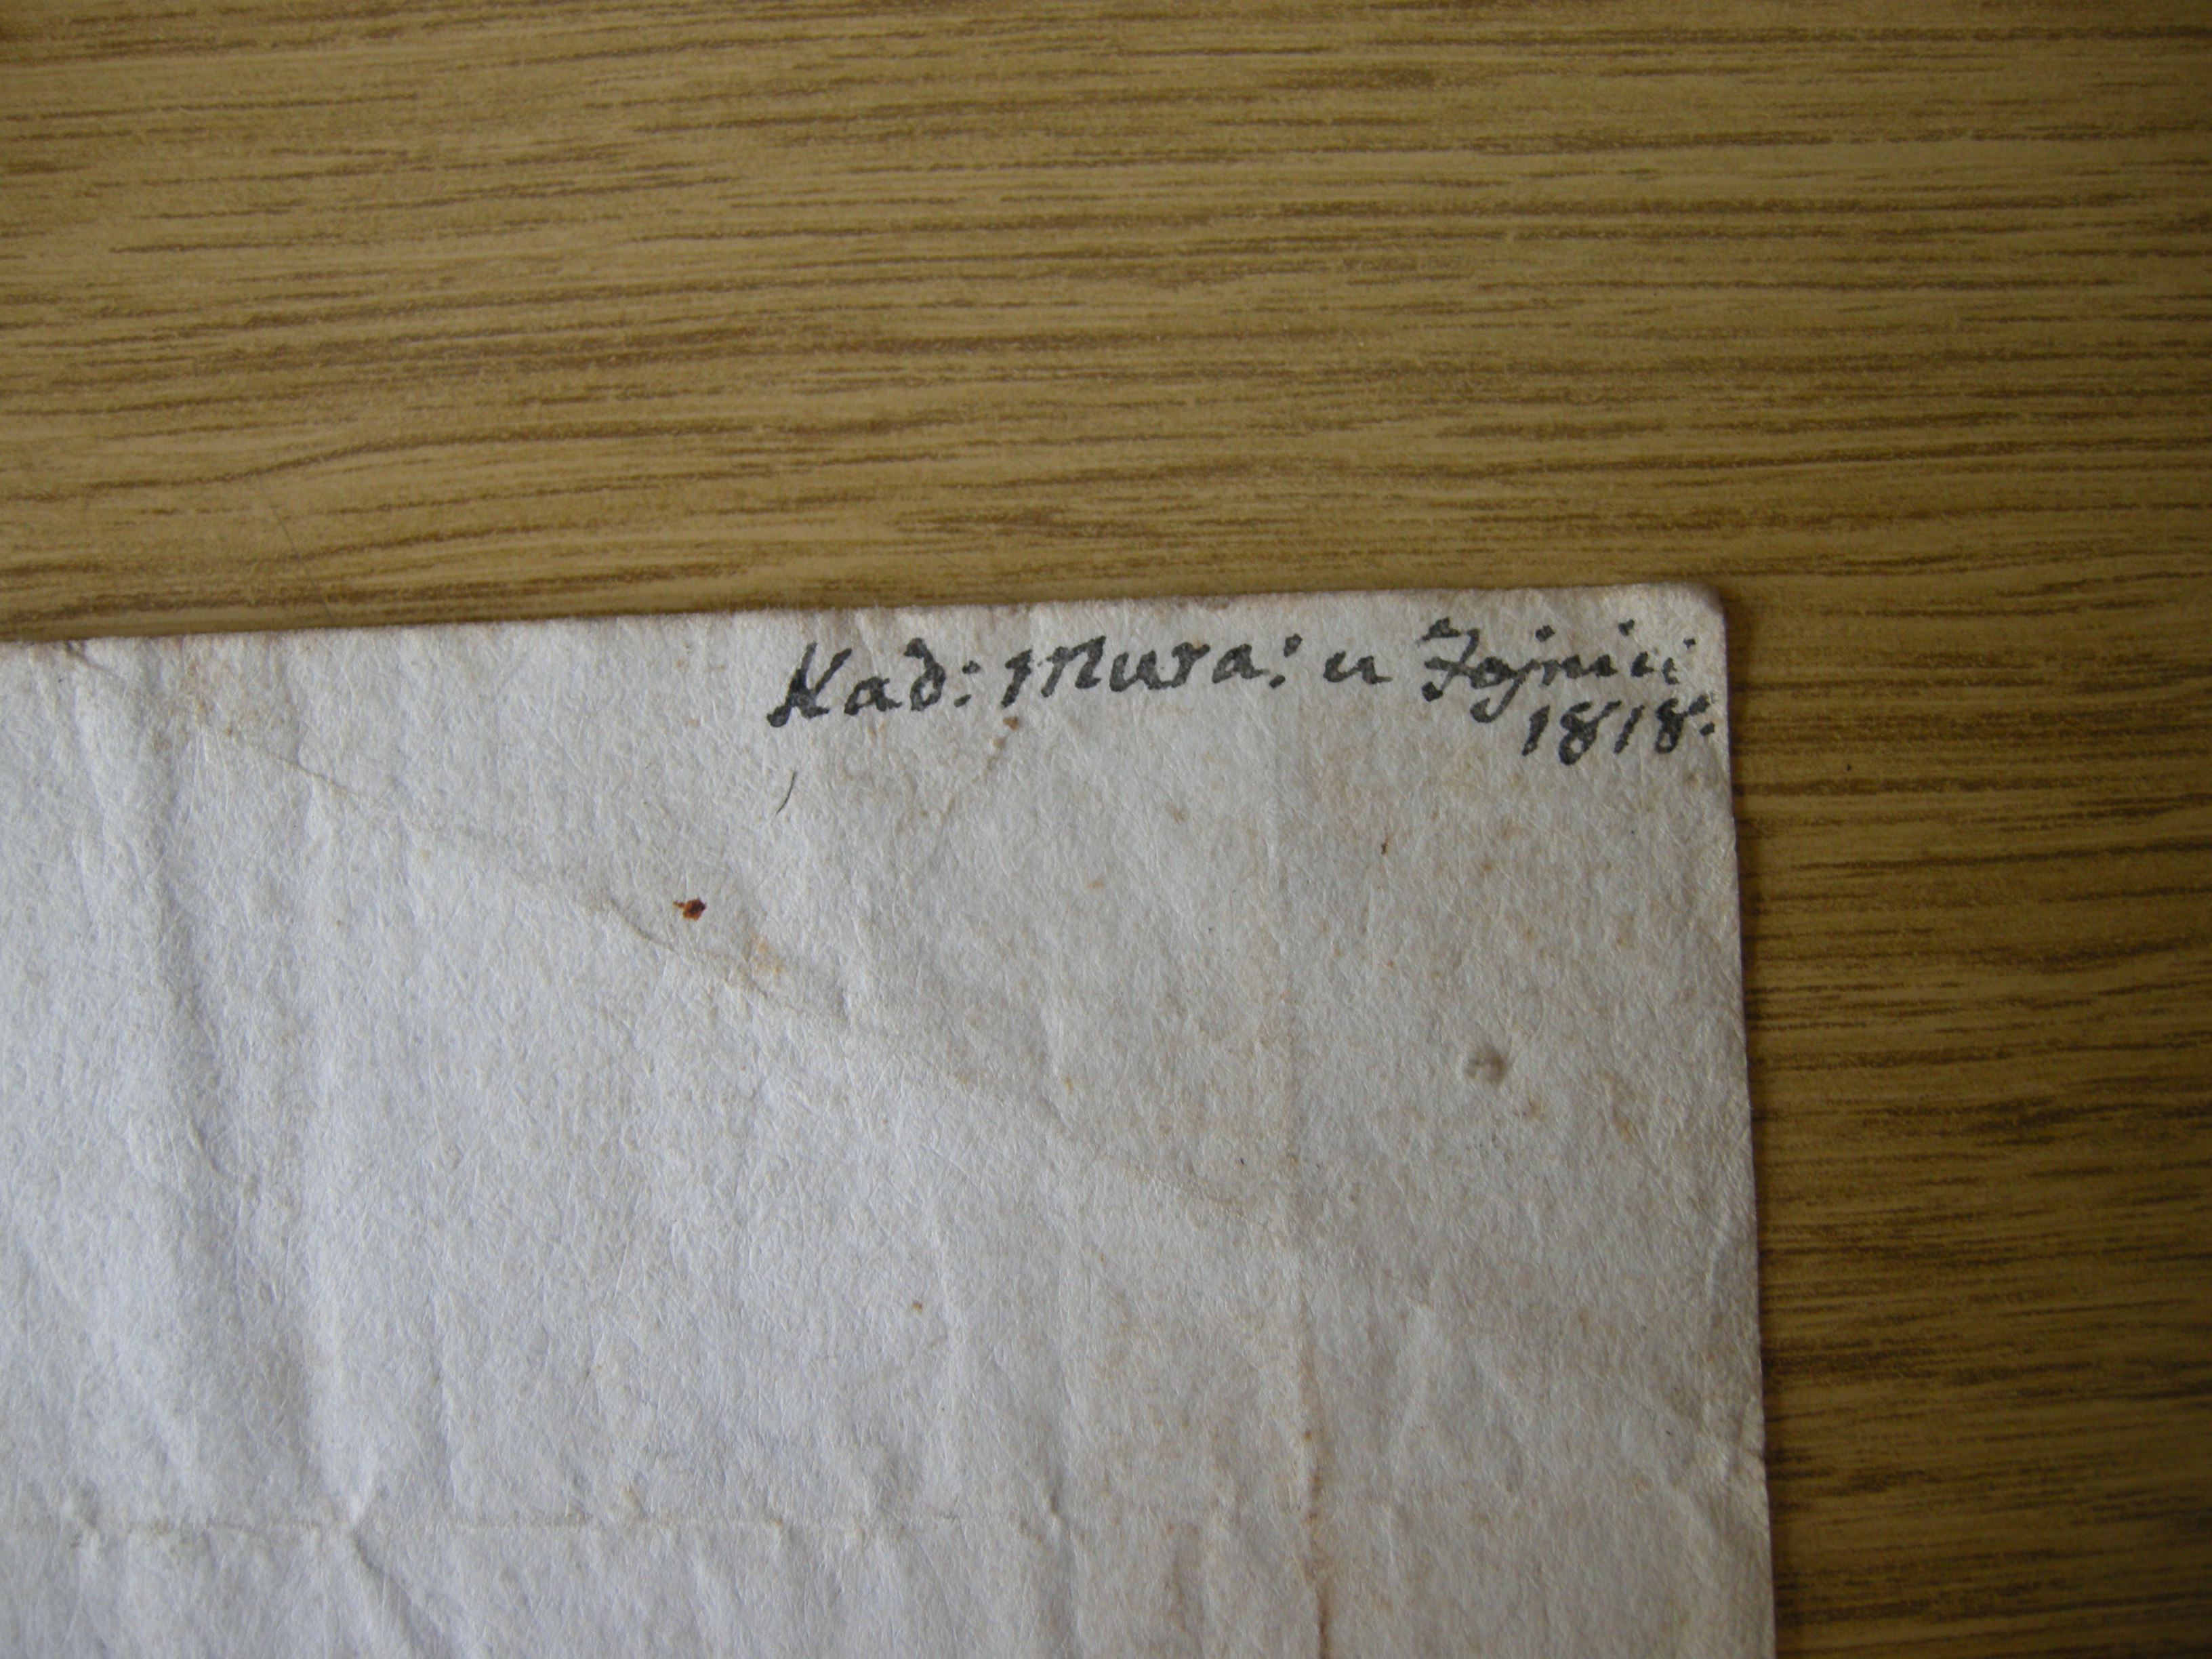 Kad: Mura: u Fojnici
1818.